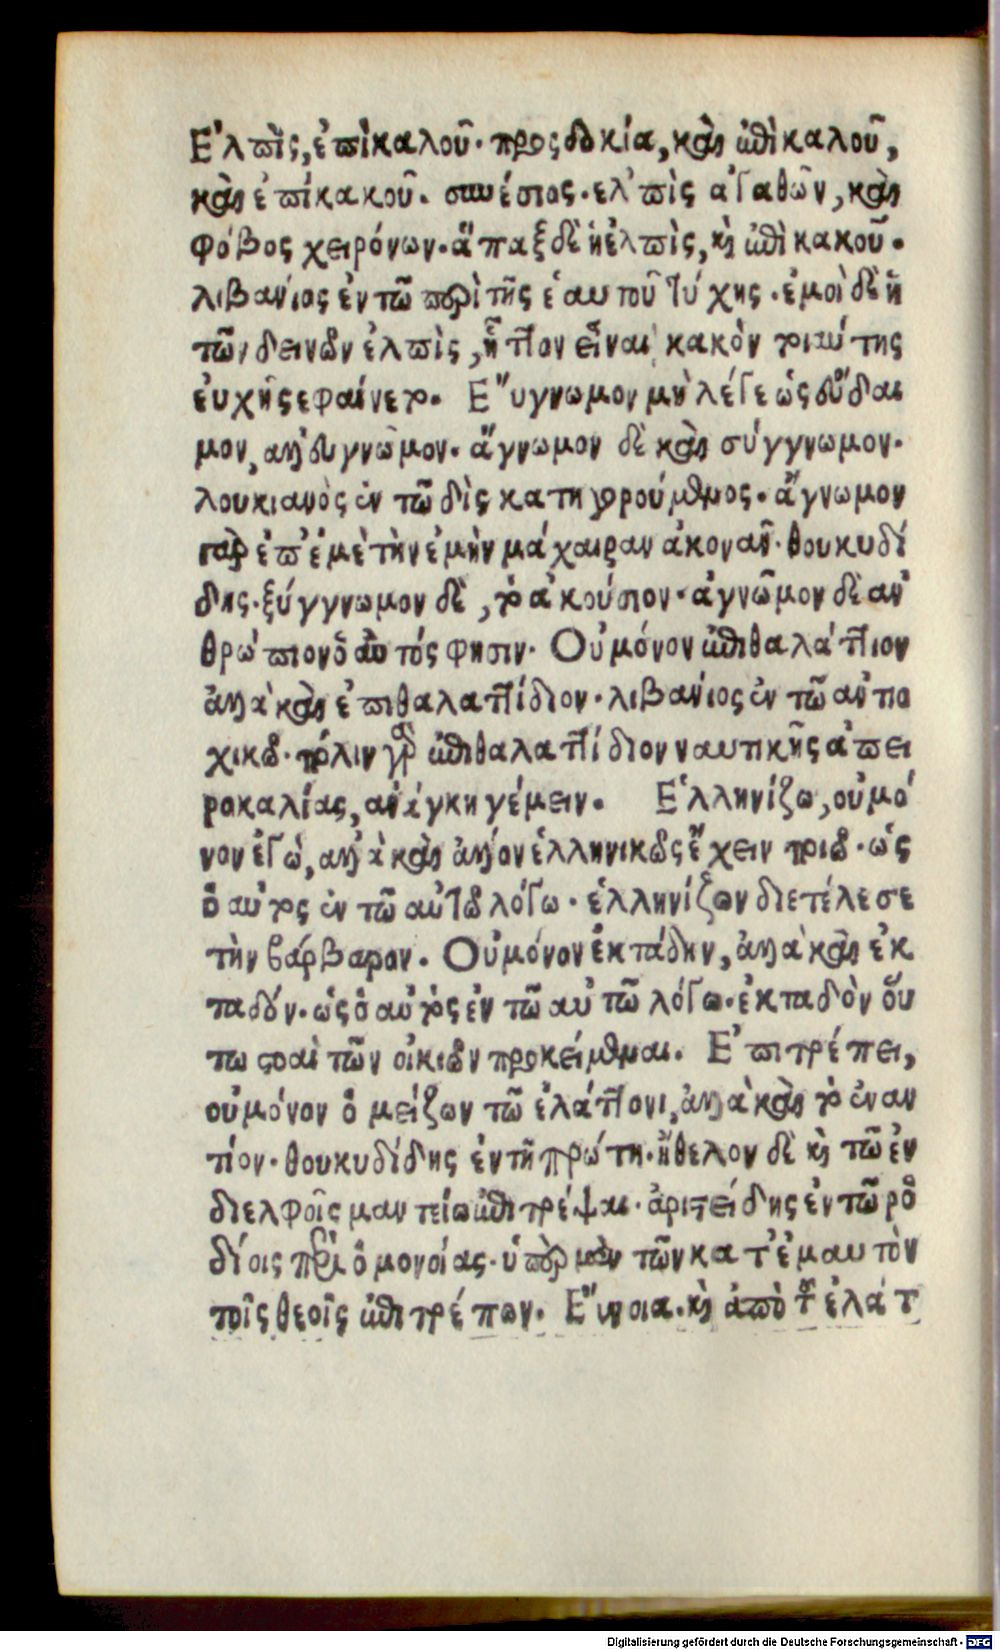 Ἐλπὶς, ἐπὶ καλοῦ· προςδοκία, καὶ ἐπὶ καλοῦ,
καὶ ἐπὶ κακοῦ. συνέσιος· ἐλπὶς ἀγαθῶν, καὶ
φόβος χειρόνων. ἅπαξ δὲ ἡ ἐλπὶς, κὶ ἐπὶ κακοῦ.
λιβανίος ἐν τῶ περὶ τῆς ἑαυτοῦ τύχης. ἐμοὶ δὲ ἡ
τῶν δεινῶν ἐλπὶς, ἧττον εἶναι κακὸν τοιαύτης
εὐχῆς ἐφαίνετο. Εὔγνωμον μὴ λέγε ὡς εὔδαι
μον, ἀλλ' εὐγνῶμον. ἄγνωμον δὲ καὶ σύγγνωμον.
λουκιανὸς ἐν τῶ δὶς κατηγορούμενος. ἄγνωμον
γὰρ ἐπ' ἐμὲ τὴν ἐμὴν μάχαιραν ἀκονᾶν. θουκυδί
δης. ξύγγνωμον δὲ, τὸ ἀκούσιον. ἀγνῶμον δὲ ἀν
θρώπιον ὃ αὐτός φησιν. Οὐ μόνον ἐπιθαλάττιον
ἀλλὰ καὶ ἐπιθαλαττίδιον. λιβανίος ἐν τῶ ἀντιο
χικῶ. πόλιν γὰρ ἐπιθαλαττίδιον ναυτικῆς ἀπει
ροκαλίας, ἀνάγκη γέμειν. Ἑλληνίζω, οὐ μό
νον ἐγὼ, ἀλλὰ καὶ ἄλλον ἑλληνικῶς ἔχειν ποιῶ. ὡς
ὁ αὐτος ἐν τῶ αὐτῶ λόγω. ἑλληνίζων διετέλεσε
τὴν βάρβαρον. Οὐ μόνον ἐκτάδην, ἀλλὰ καὶ ἐκ
ταδόν. ὡς ὁ αὐτὸς ἐν τῶ αὐτῶ λόγω. ἐκταδὸν οὕ
τω στοαὶ τῶν οἰκιῶν προκείμεναι. Ἐπιτρέπει,
οὐ μόνον ὁ μείζων τῶ ἐλάττονι, ἀλλὰ καὶ τὸ ἐναν
τίον. θουκυδίδης ἐν τῆ πρώτη. ἤθελον δὲ κὶ τῶ ἐν
διελφοῖς μαντείω ἐπιτρέψαι. ἀριστείδης ἐν τῶ ῥο
δίοις περὶ ὁμονοίας. ὑπὲρ μὲν τῶν κατ' ἐμαυτὸν
τοῖς θεοῖς ἐπιτρέπων. Εὔνοια. κὶ ἀπὸ τοῦ ἐλάτ
Digitalisierung gefördert durch die Deutsche Forschungsgemeinschaft - DFG